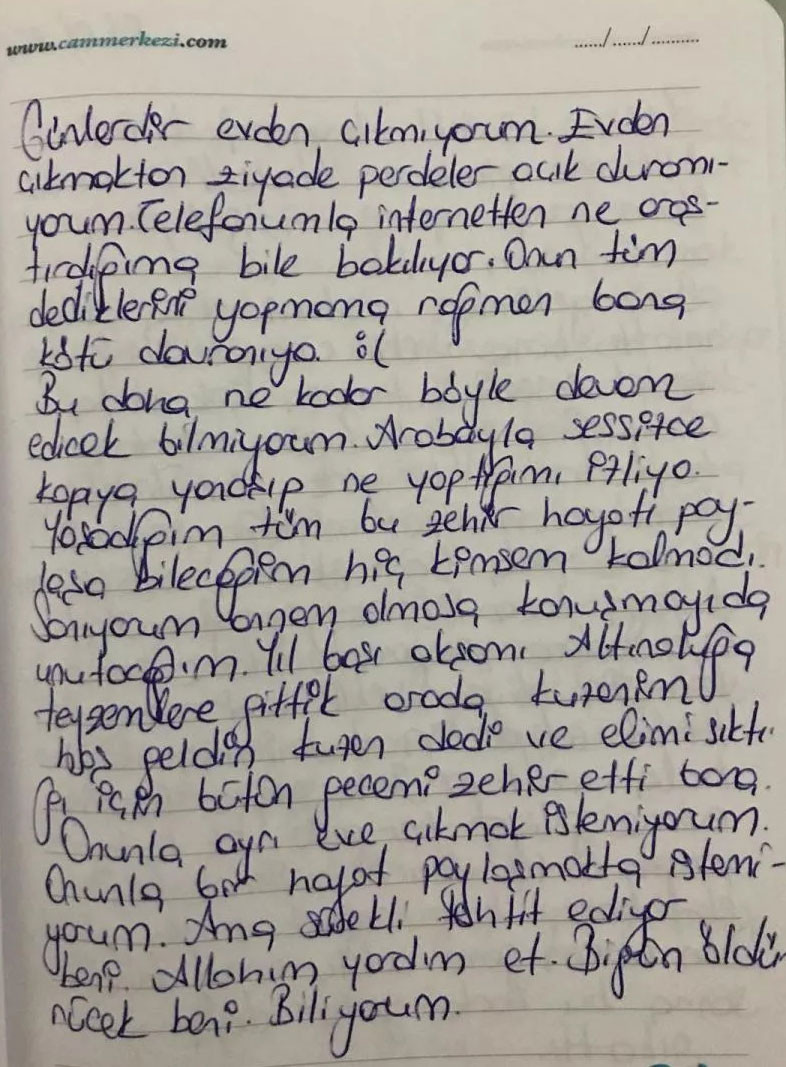 www.cammerkezi.com
....../....../..........
Günlerdir evden çıkmıyorum. Evden
çıkmaktan ziyade perdeler açık duramı-
yorum. Telefonumla internetten ne araş-
tırdığıma bile bakılıyor. Onun tüm
dediklerini yapmama rağmen bana
kötü davranıyo. :(
Bu daha ne kadar böyle devam
edicek bilmiyorum. Arabayla sessizce
kapıya yanaşıp ne yaptığımı izliyo.
Yaşadığım tüm bu zehir hayatı pay-
laşa bileceğim hiç kimsem kalmadı.
Sanıyorum annem olmasa konuşmayıda
unutacağım. Yıl başı akşamı Altınoluğa
teyzemlere gittik orada kuzenim
hoş geldin kuzen dedi ve elimi sıktı.
için bütün gecemi zehir etti bana.
Onunla ayrı eve çıkmak istemiyorum.
Onunla bir hayat paylaşmakta istemi-
yorum. Ama sürekli tehtit ediyor
beni. Allahım yardım et. Bigün öldür
mücek beni. Biliyorum.